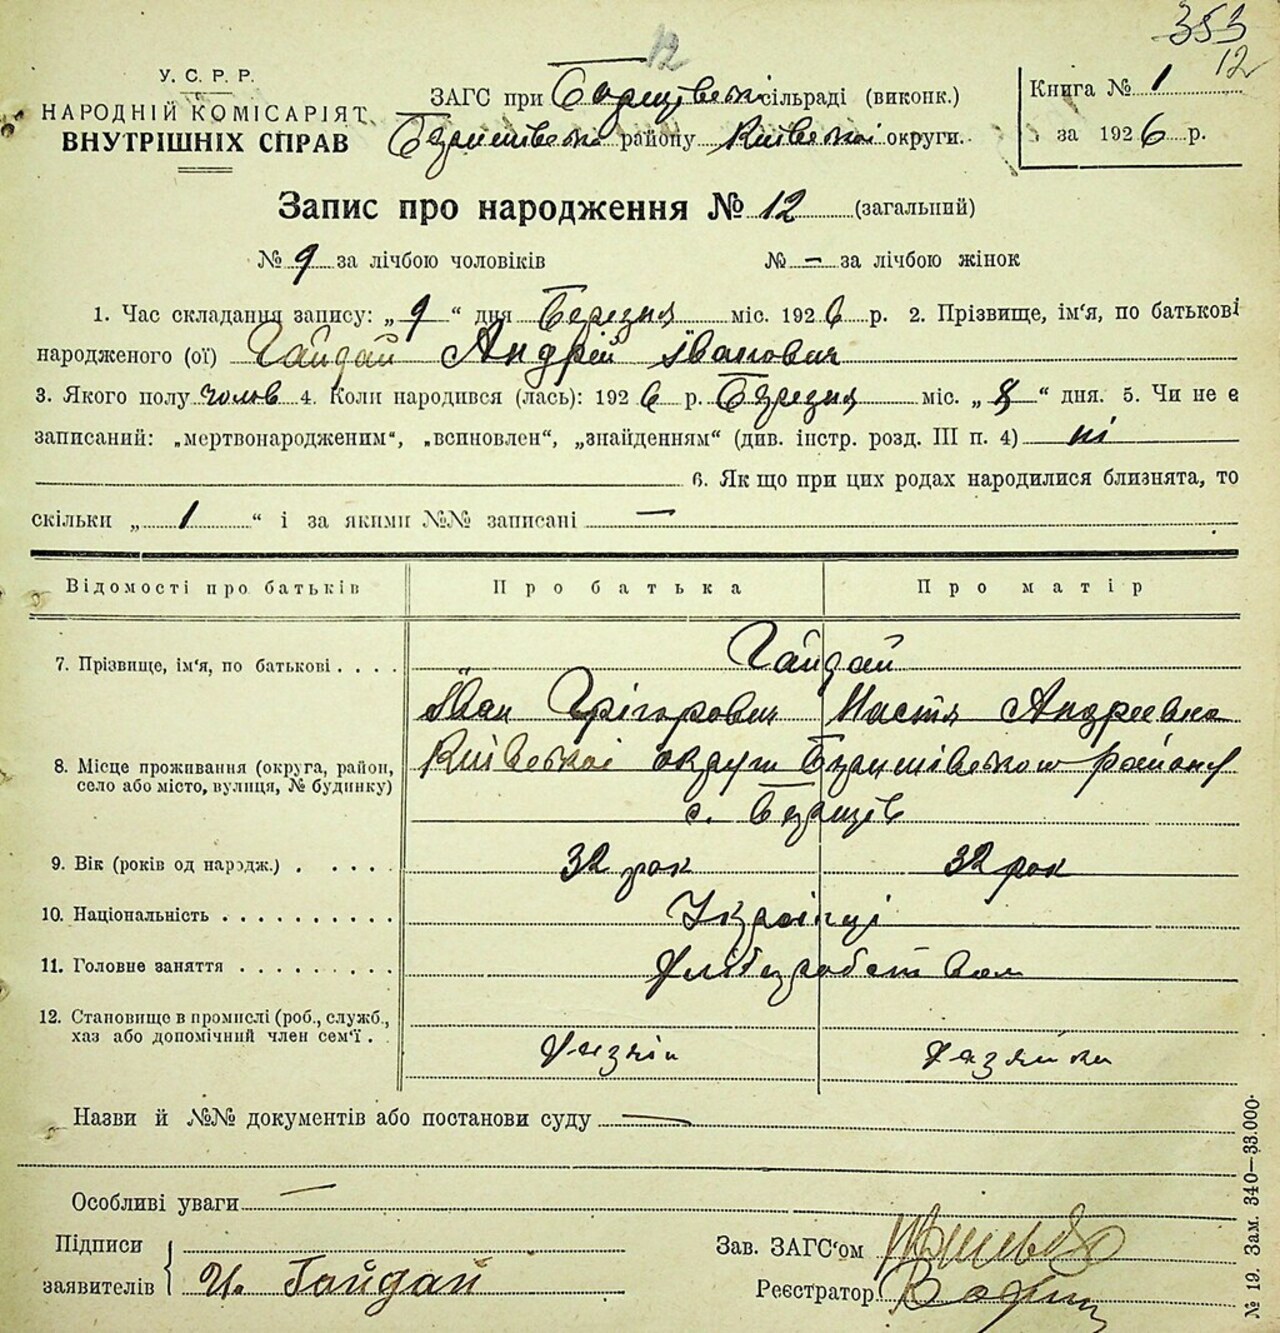 353
12
12
У. С. Р. Р.
НАРОДНІЙ КОМІСАРІЯТ
ВНУТРІШНІХ СПРАВ
ЗАГС при сільраді (виконк.)
району Київської округи.
Книга № 1
за 1926 р.
Запис про народження № 12 (загальний)
№ 9 за лічбою чоловіків № — за лічбою жінок
1. Час складання запису: „ 9 “ дня Березня міс. 1926 р. 2. Прізвище, ім'я, по батькові
народженого (ої) Гайдай Андрій Іванович
3. Якого полу чолов 4. Коли народився (лась): 1926 р. Березня міс. „ 8 “ дня. 5. Чи не є
записаний: „мертвонародженим“, „всиновлен“, „знайденням“ (див. інстр. розд. III п. 4) ні
6. Як що при цих родах народилися близнята, то
скільки „ 1 “ і за якими №№ записані —
Відомості про батьків Про батька Про матір
7. Прізвище, ім'я, по батькові . . . . Гайдай
Іван Грігорович Настя Андреевна
8. Місце проживання (округа, район, Київської округи району
село або місто, вулиця, № будинку) с.
9. Вік (років од народж.) . . . . . 32 рок 32 рок
10. Національність . . . . . . . . . . Українці
11. Головне заняття . . . . . . . . . Хліборобством
12. Становище в промислі (роб., служб.,
хаз або допомічний член сем'ї . . Хазяін Хазяйка
Назви й №№ документів або постанови суду —
Особливі уваги —
Підписи Зав. ЗАГС'ом
заявителів И. Гайдай Реєстратор
№ 19. Зам. 340—33.000.